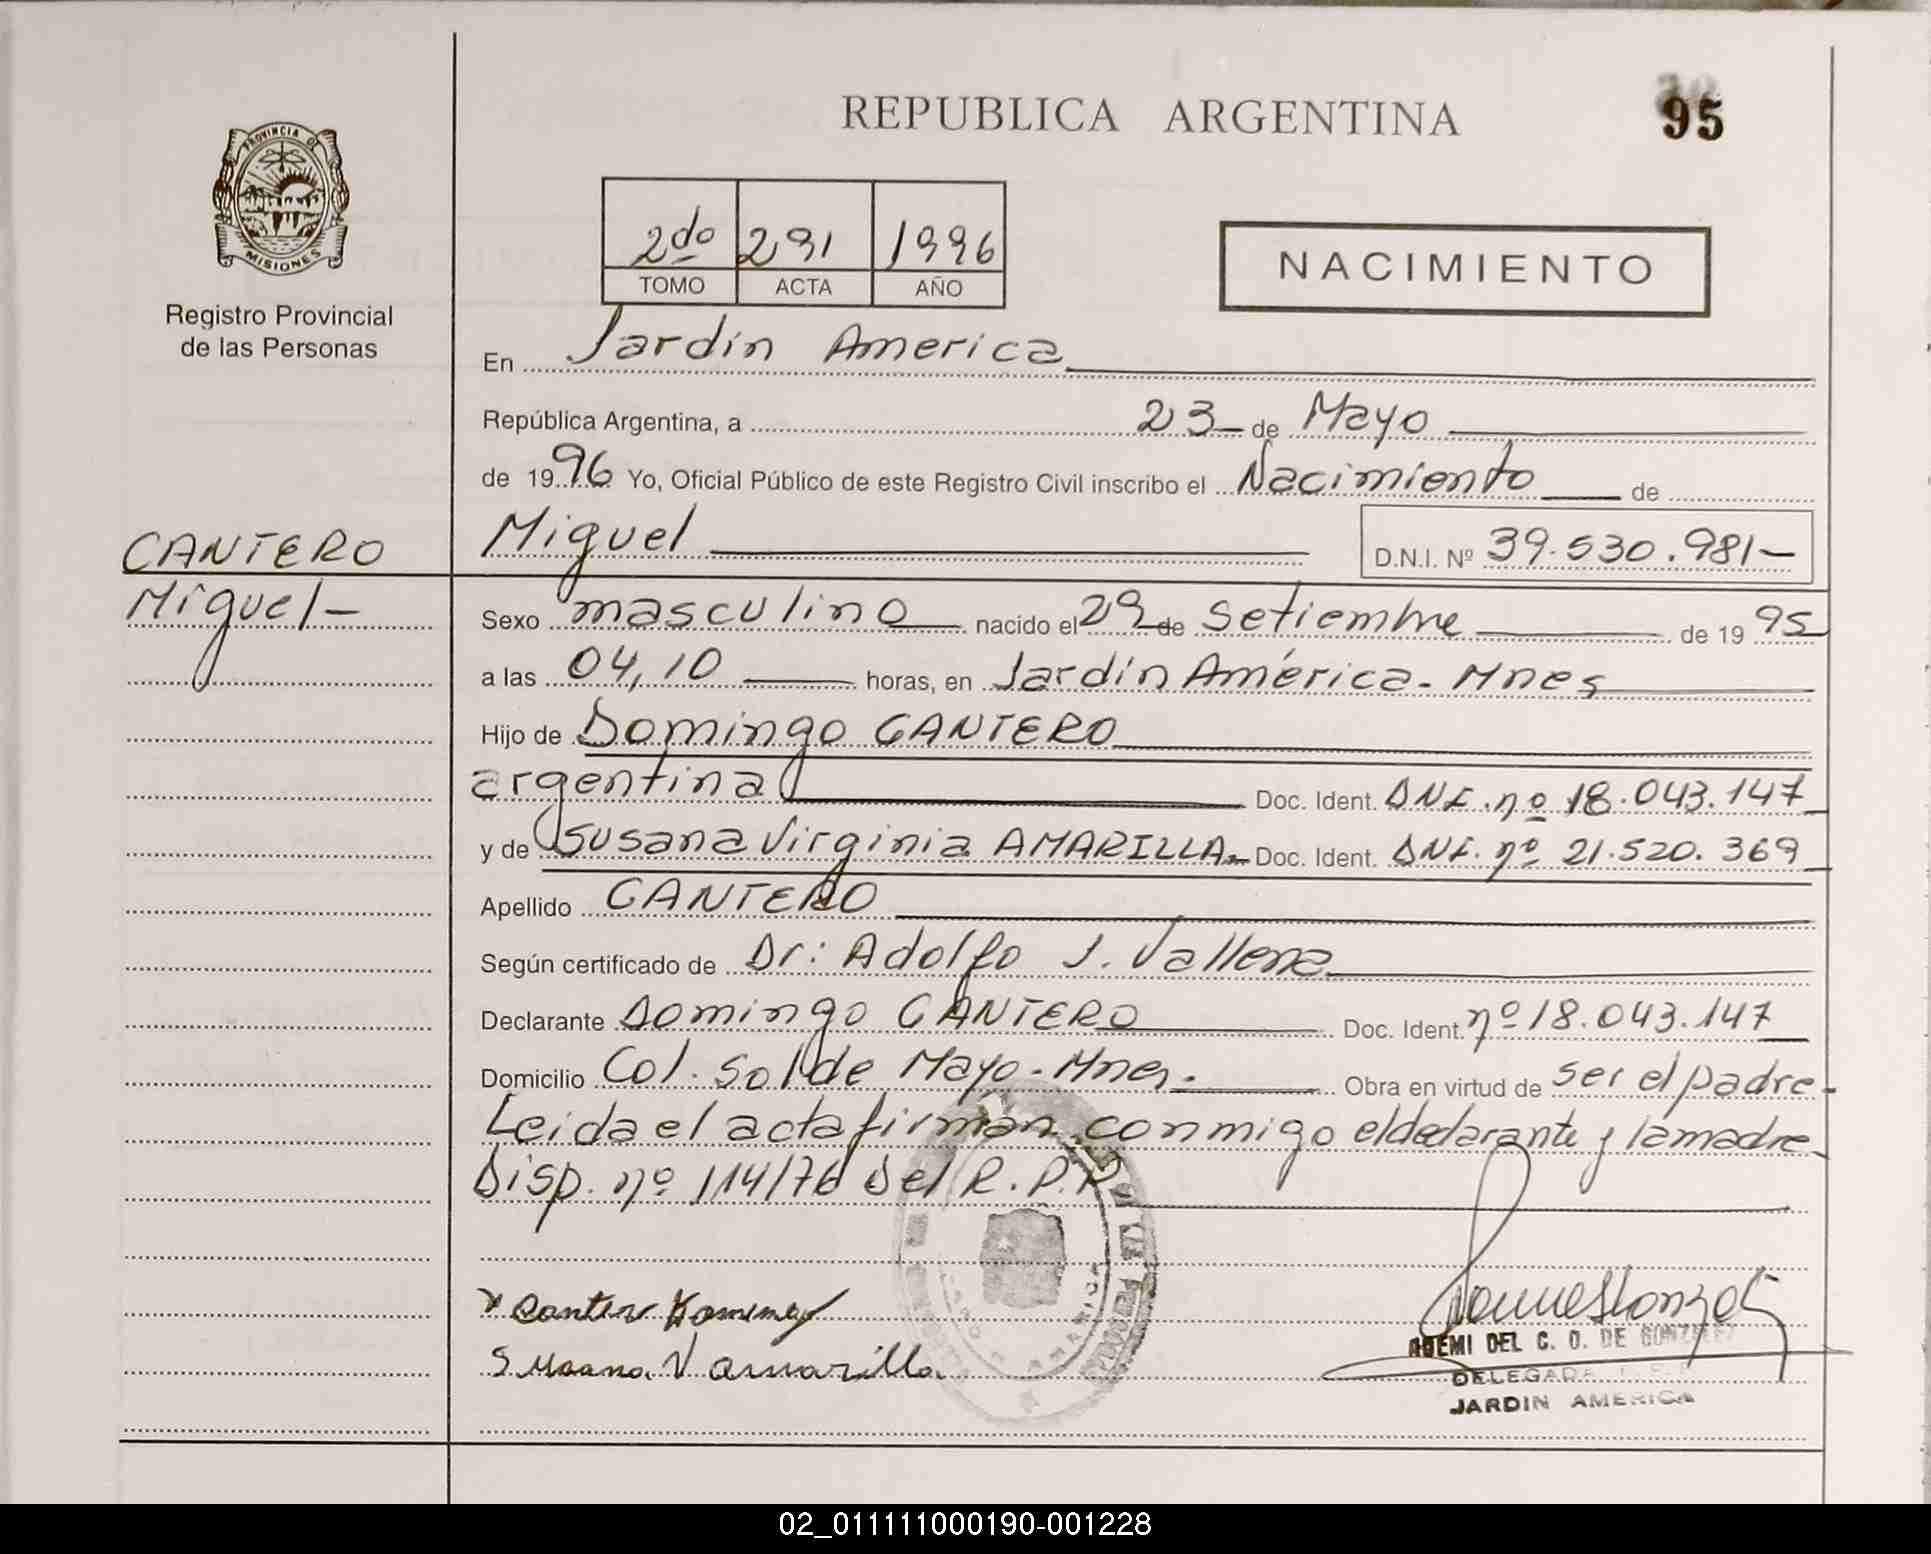 REPUBLICA ARGENTINA
95
PROVINCIA DE
MISIONES
Registro Provincial
de las Personas
2do 291 1996
TOMO ACTA AÑO
NACIMIENTO
En Jardín America
República Argentina, a 23 de Mayo
de 1996 Yo, Oficial Público de este Registro Civil inscribo el Nacimiento de
CANTERO
Miguel
Miguel D.N.I. Nº 39.530.981
Sexo masculino nacido el 29 de Setiembre de 1995
a las 04,10 horas, en Jardín América - Mnes
Hijo de Domingo CANTERO
argentina Doc. Ident. DNI. nº 18.043.147
y de Susana Virginia AMARILLA Doc. Ident. DNI. nº 21.520.369
Apellido CANTERO
Según certificado de Dr: Adolfo J.
Declarante Domingo CANTERO Doc. Ident. nº 18.043.147
Domicilio Col. Sol de Mayo - Mnes. Obra en virtud de ser el padre
Leida el acta firman conmigo el declarante y la madre
Disp. nº 114/76 del R.P.P.
Susana V Amarilla
DEL C. O. DE GONZALEZ
JARDIN AMERICA
02_011111000190-001228